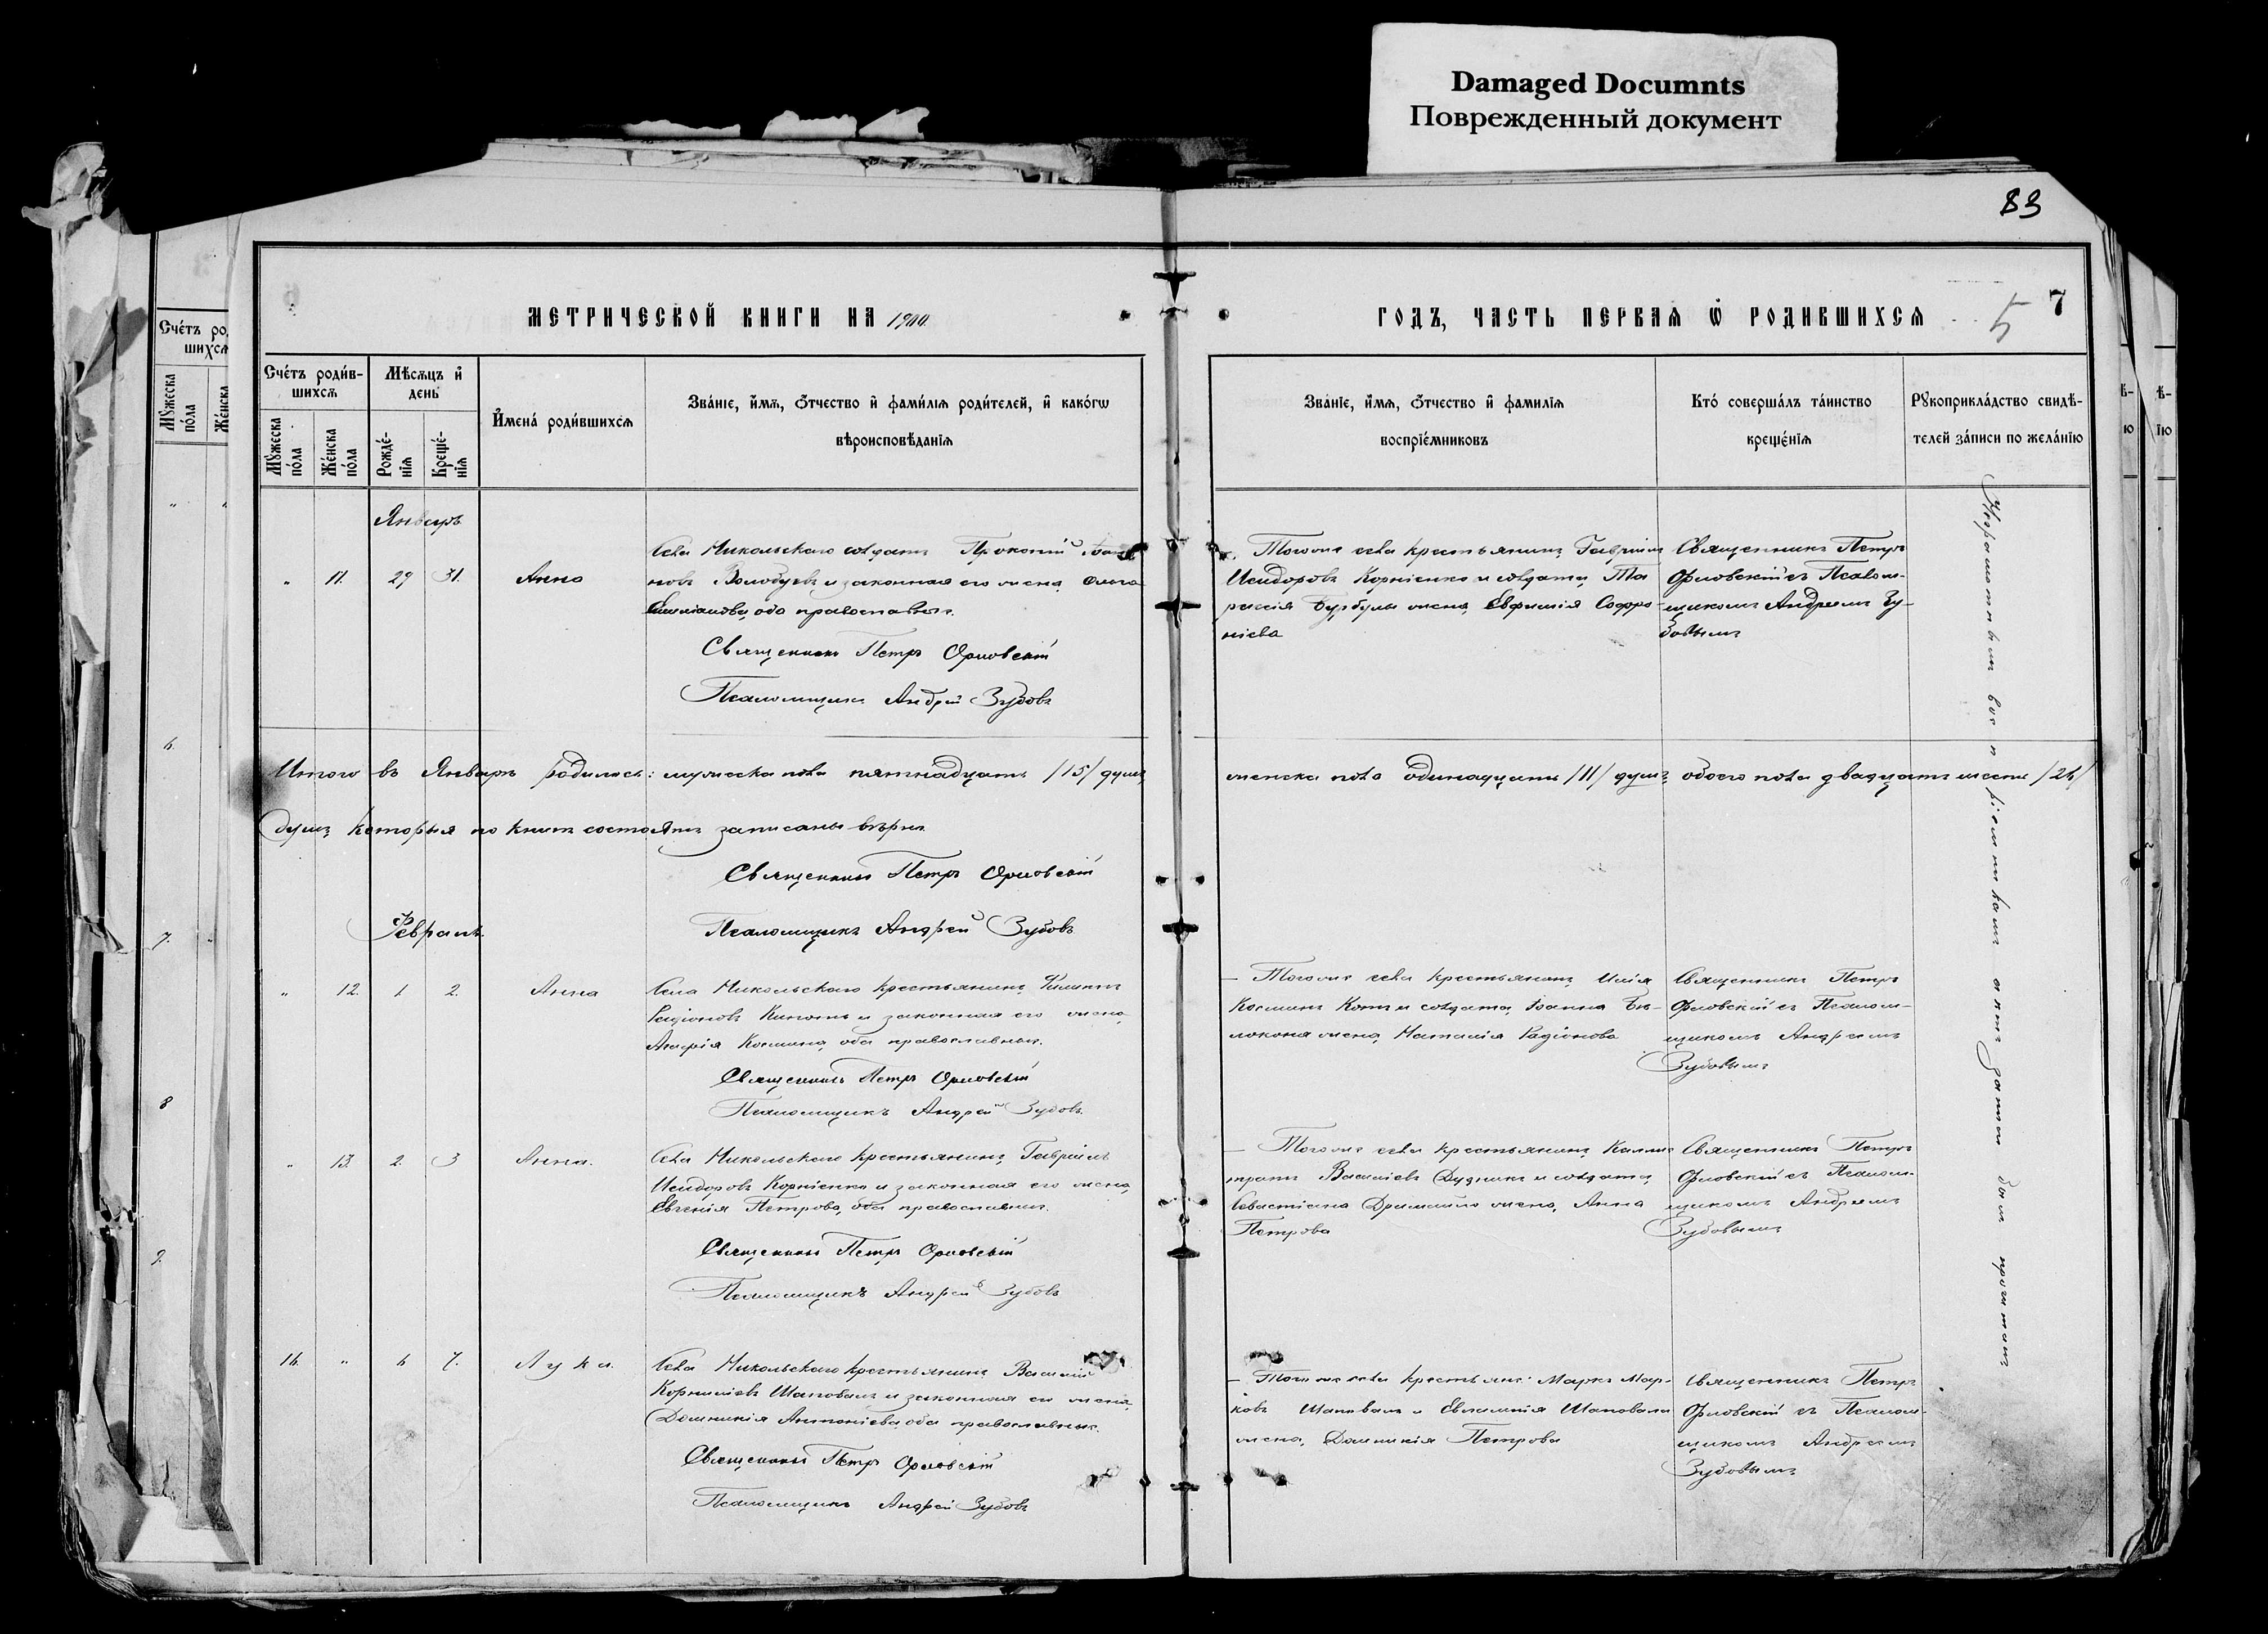 Damaged Documnts
Поврежденный документ
83
МЕТРИЧЕСКОЙ КНИГИ НА 1900
ГОДЪ, ЧАСТЬ ПЕРВАЯ Ѡ РОДИВШИХСЯ
5
7
Счётъ роди́в-
шихсѧ
Мѣсѧцъ и҆
день
Мꙋ́жеска
по́ла
Же́нска
по́ла
Рожде́-
нїѧ
Креще́-
нїѧ
И҆мена̀ роди́вшихсѧ
Зва́нїе, и҆́мѧ, ѻ҆́тчество и҆ фами́лїѧ роди́телей, и҆ како́гѡ
вѣроисповѣ́данїѧ
Зва́нїе, и҆́мѧ, ѻ҆́тчество и҆ фами́лїѧ
воспрїе́мниковъ
Кто̀ соверша́лъ та́инство
креще́нїѧ
Рꙋкоприкла́дство свидѣ́-
телей за́писи по жела́нїю
Январь
" 11. 29 31. Анна
Села Никольскаго солдатъ Прокопій
новъ Волобуевъ и законная его жена Ольга
оба православные.
Священникъ Петръ Орловскій
Псаломщикъ Андрей Зубовъ
Тогоже села крестьянинъ Гавріилъ
Исидоровъ Корніенко и солдата Та
расія Бурбулы жена Евфимія Софро-
ніева
Священникъ Петръ
Орловскій съ Псалом-
щикомъ Андреемъ Зу-
бовымъ
Итого въ Январѣ родилось: мужеска пола пятнадцать /15/ душъ,
женска пола одинадцать /11/ душъ, обоего пола двадцать шесть /26/
душъ, которыя по книгѣ состоятъ записаны вѣрно.
Священникъ Петръ Орловскій
Псаломщикъ Андрей Зубовъ
Февраль
" 12. 1. 2. Анна
Села Никольскаго крестьянинъ Филиппъ
Радіоновъ и законная его жена,
Косьмина, оба православные.
Священникъ Петръ Орловскій
Псаломщикъ Андрей Зубовъ.
Тогоже села крестьянинъ Илія
Косьминъ Котъ и солдата Іоанна Бѣ-
локоня жена, Наталія Радіонова
Священникъ Петръ
Орловскій съ Псалом-
щикомъ Андреемъ
Зубовымъ
" 13. 2. 3 Анна.
Села Никольскаго крестьянинъ, Гавріилъ
Исидоровъ Корніенко и законная его жена,
Евгенія Петрова, оба православные.
Священникъ Петръ Орловскій
Псаломщикъ Андрей Зубовъ
Тогоже села крестьянинъ Калли-
тратъ Василіевъ Дудникъ и солдата,
Севастіана жена, Анна
Петрова
Священникъ Петръ
Орловскій съ Псалом-
щикомъ Андреемъ
Зубовымъ
16. " 6 7. Лука.
Села Никольскаго крестьянинъ Василій
Корниліевъ Шаповалъ и законная его жена,
Домникія Антоніева, оба православные.
Священникъ Петръ Орловскій
Псаломщикъ Андрей Зубовъ
Тогоже села крестьян: Маркъ Мар-
ковъ Шаповалъ и Евлампія Шаповала
жена, Домникія Петрова
Священникъ Петръ
Орловскій съ Псалом-
щикомъ Андреемъ
Зубовымъ
Неграмотнымъ воспріемникамъ